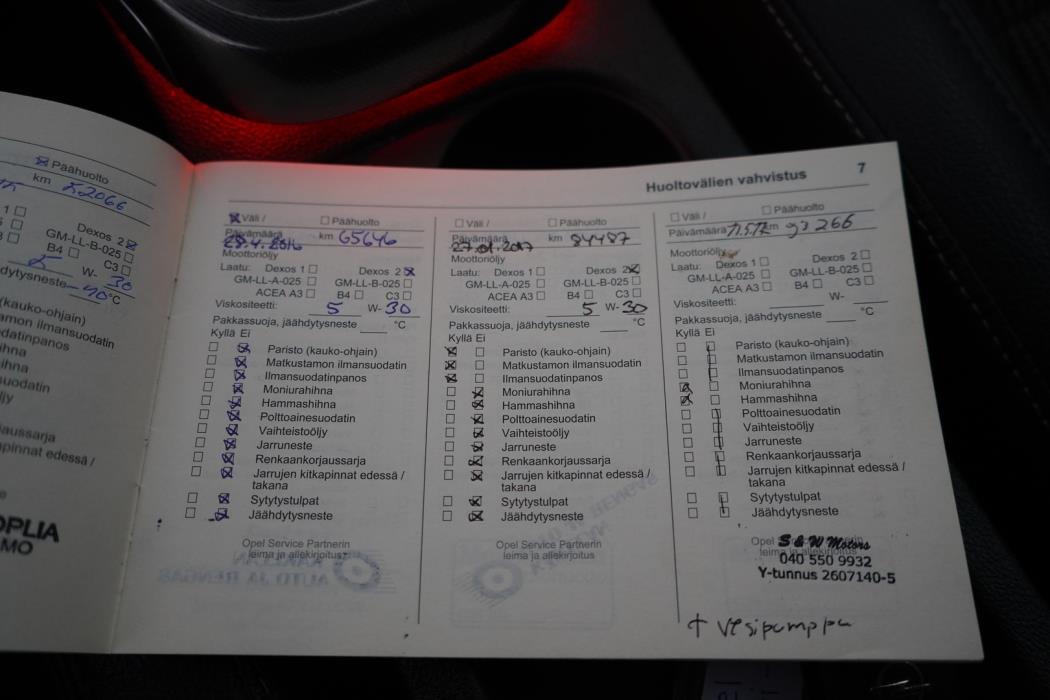 Päähuolto
km 52066
Dexos 2
GM-LL-B-025
C3
W- 30
dytysneste -40 °C
(kauko-ohjain)
amon ilmansuodatin
datinpanos
ihna
hihna
suodatin
ljy
aussarja
pinnat edessä /
OPLIA
MO
Huoltovälien vahvistus 7
Väli / Päähuolto
Päivämäärä 28.4.2016 km 65646
Moottoriöljy
Laatu: Dexos 1 Dexos 2
GM-LL-A-025 GM-LL-B-025
ACEA A3 B4 C3
Viskositeetti: 5 W- 30
Pakkassuoja, jäähdytysneste °C
Kyllä Ei
Paristo (kauko-ohjain)
Matkustamon ilmansuodatin
Ilmansuodatinpanos
Moniurahihna
Hammashihna
Polttoainesuodatin
Vaihteistoöljy
Jarruneste
Renkaankorjaussarja
Jarrujen kitkapinnat edessä /
takana
Sytytystulpat
Jäähdytysneste
Opel Service Partnerin
leima ja allekirjoitus
Väli / Päähuolto
Päivämäärä 27.01.2017 km 84487
Moottoriöljy
Laatu: Dexos 1 Dexos 2
GM-LL-A-025 GM-LL-B-025
ACEA A3 B4 C3
Viskositeetti: 5 W- 30
Pakkassuoja, jäähdytysneste °C
Kyllä Ei
Paristo (kauko-ohjain)
Matkustamon ilmansuodatin
Ilmansuodatinpanos
Moniurahihna
Hammashihna
Polttoainesuodatin
Vaihteistoöljy
Jarruneste
Renkaankorjaussarja
Jarrujen kitkapinnat edessä /
takana
Sytytystulpat
Jäähdytysneste
Opel Service Partnerin
leima ja allekirjoitus
Väli / Päähuolto
Päivämäärä 11.5.17 km 93266
Moottoriöljy
Laatu: Dexos 1 Dexos 2
GM-LL-A-025 GM-LL-B-025
ACEA A3 B4 C3
Viskositeetti: W-
Pakkassuoja, jäähdytysneste °C
Kyllä Ei
Paristo (kauko-ohjain)
Matkustamon ilmansuodatin
Ilmansuodatinpanos
Moniurahihna
Hammashihna
Polttoainesuodatin
Vaihteistoöljy
Jarruneste
Renkaankorjaussarja
Jarrujen kitkapinnat edessä /
takana
Sytytystulpat
Jäähdytysneste
Opel S & W Motors
leima ja allekirjoitus
040 550 9932
Y-tunnus 2607140-5
+ vesipumppu